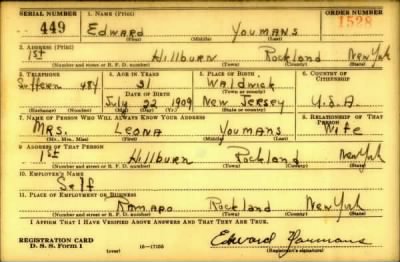 SERIAL NUMBER 1. NAME (Print) ORDER NUMBER
449 EDWARD YOUMANS 1528
(First) (Middle) (Last)
2. ADDRESS (Print)
1st Hillburn Rockland New York
(Number and street or R. F. D. number) (Town) (County) (State)
3. TELEPHONE 4. AGE IN YEARS 5. PLACE OF BIRTH 6. COUNTRY OF CITIZENSHIP
Suffern 484 31 Waldwick
DATE OF BIRTH (Town or county)
July 22 1909 New Jersey U.S.A
(Exchange) (Number) (Mo.) (Day) (Yr.) (State or country)
7. NAME OF PERSON WHO WILL ALWAYS KNOW YOUR ADDRESS 8. RELATIONSHIP OF THAT PERSON
Mrs. Leona Youmans Wife
(Mr., Mrs., Miss) (First) (Middle) (Last)
9. ADDRESS OF THAT PERSON
1st Hillburn Rockland New York
(Number and street or R. F. D. number) (Town) (County) (State)
10. EMPLOYER'S NAME
Self
11. PLACE OF EMPLOYMENT OR BUSINESS
Ramapo Rockland New York
(Number and street or R. F. D. number) (Town) (County) (State)
I AFFIRM THAT I HAVE VERIFIED ABOVE ANSWERS AND THAT THEY ARE TRUE.
REGISTRATION CARD
D. S. S. FORM 1 (over) 16-17105 Edward Youmans
(Registrant's signature)